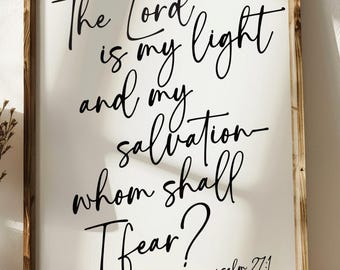 The Lord
is my light
and my
salvation
whom shall
I fear?
psalm 27:1